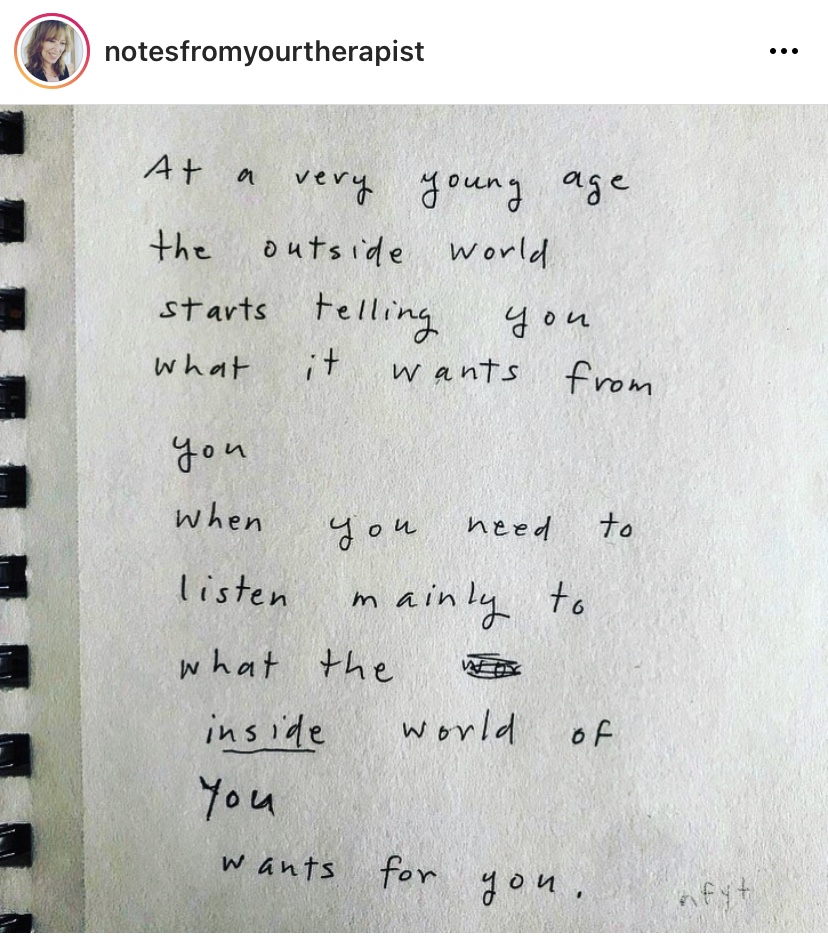 notesfromyourtherapist
At a very young age
the outside world
starts telling you
what it wants from
you
when you need to
listen mainly to
what the
inside world of
You
wants for you.
nfyt